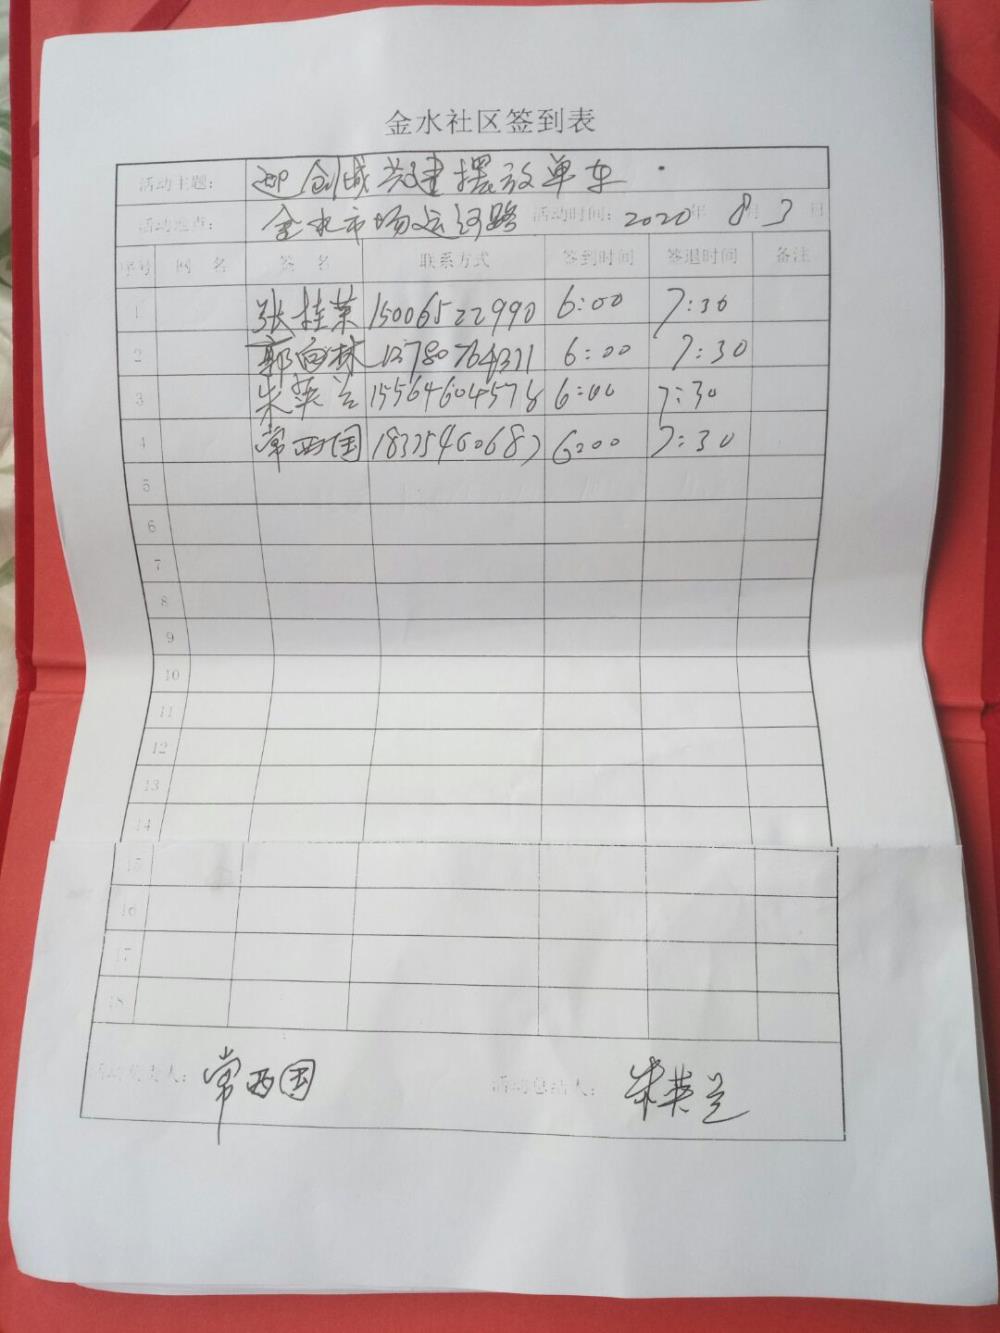 金水社区签到表
活动主题： 迎创城共建摆放单车
活动地点： 金水市场运河路 活动时间：2020年8月3日
序号 网名 签名 联系方式 签到时间 签退时间 备注
1 张桂荣 15006522990 6:00 7:30
2 郭向林 6:00 7:30
3 朱英兰 15564604578 6:00 7:30
4 常西国 6:00 7:30
5
6
7
8
9
10
11
12
13
14
15
16
17
18
活动负责人：常西国 活动总结人：朱英兰